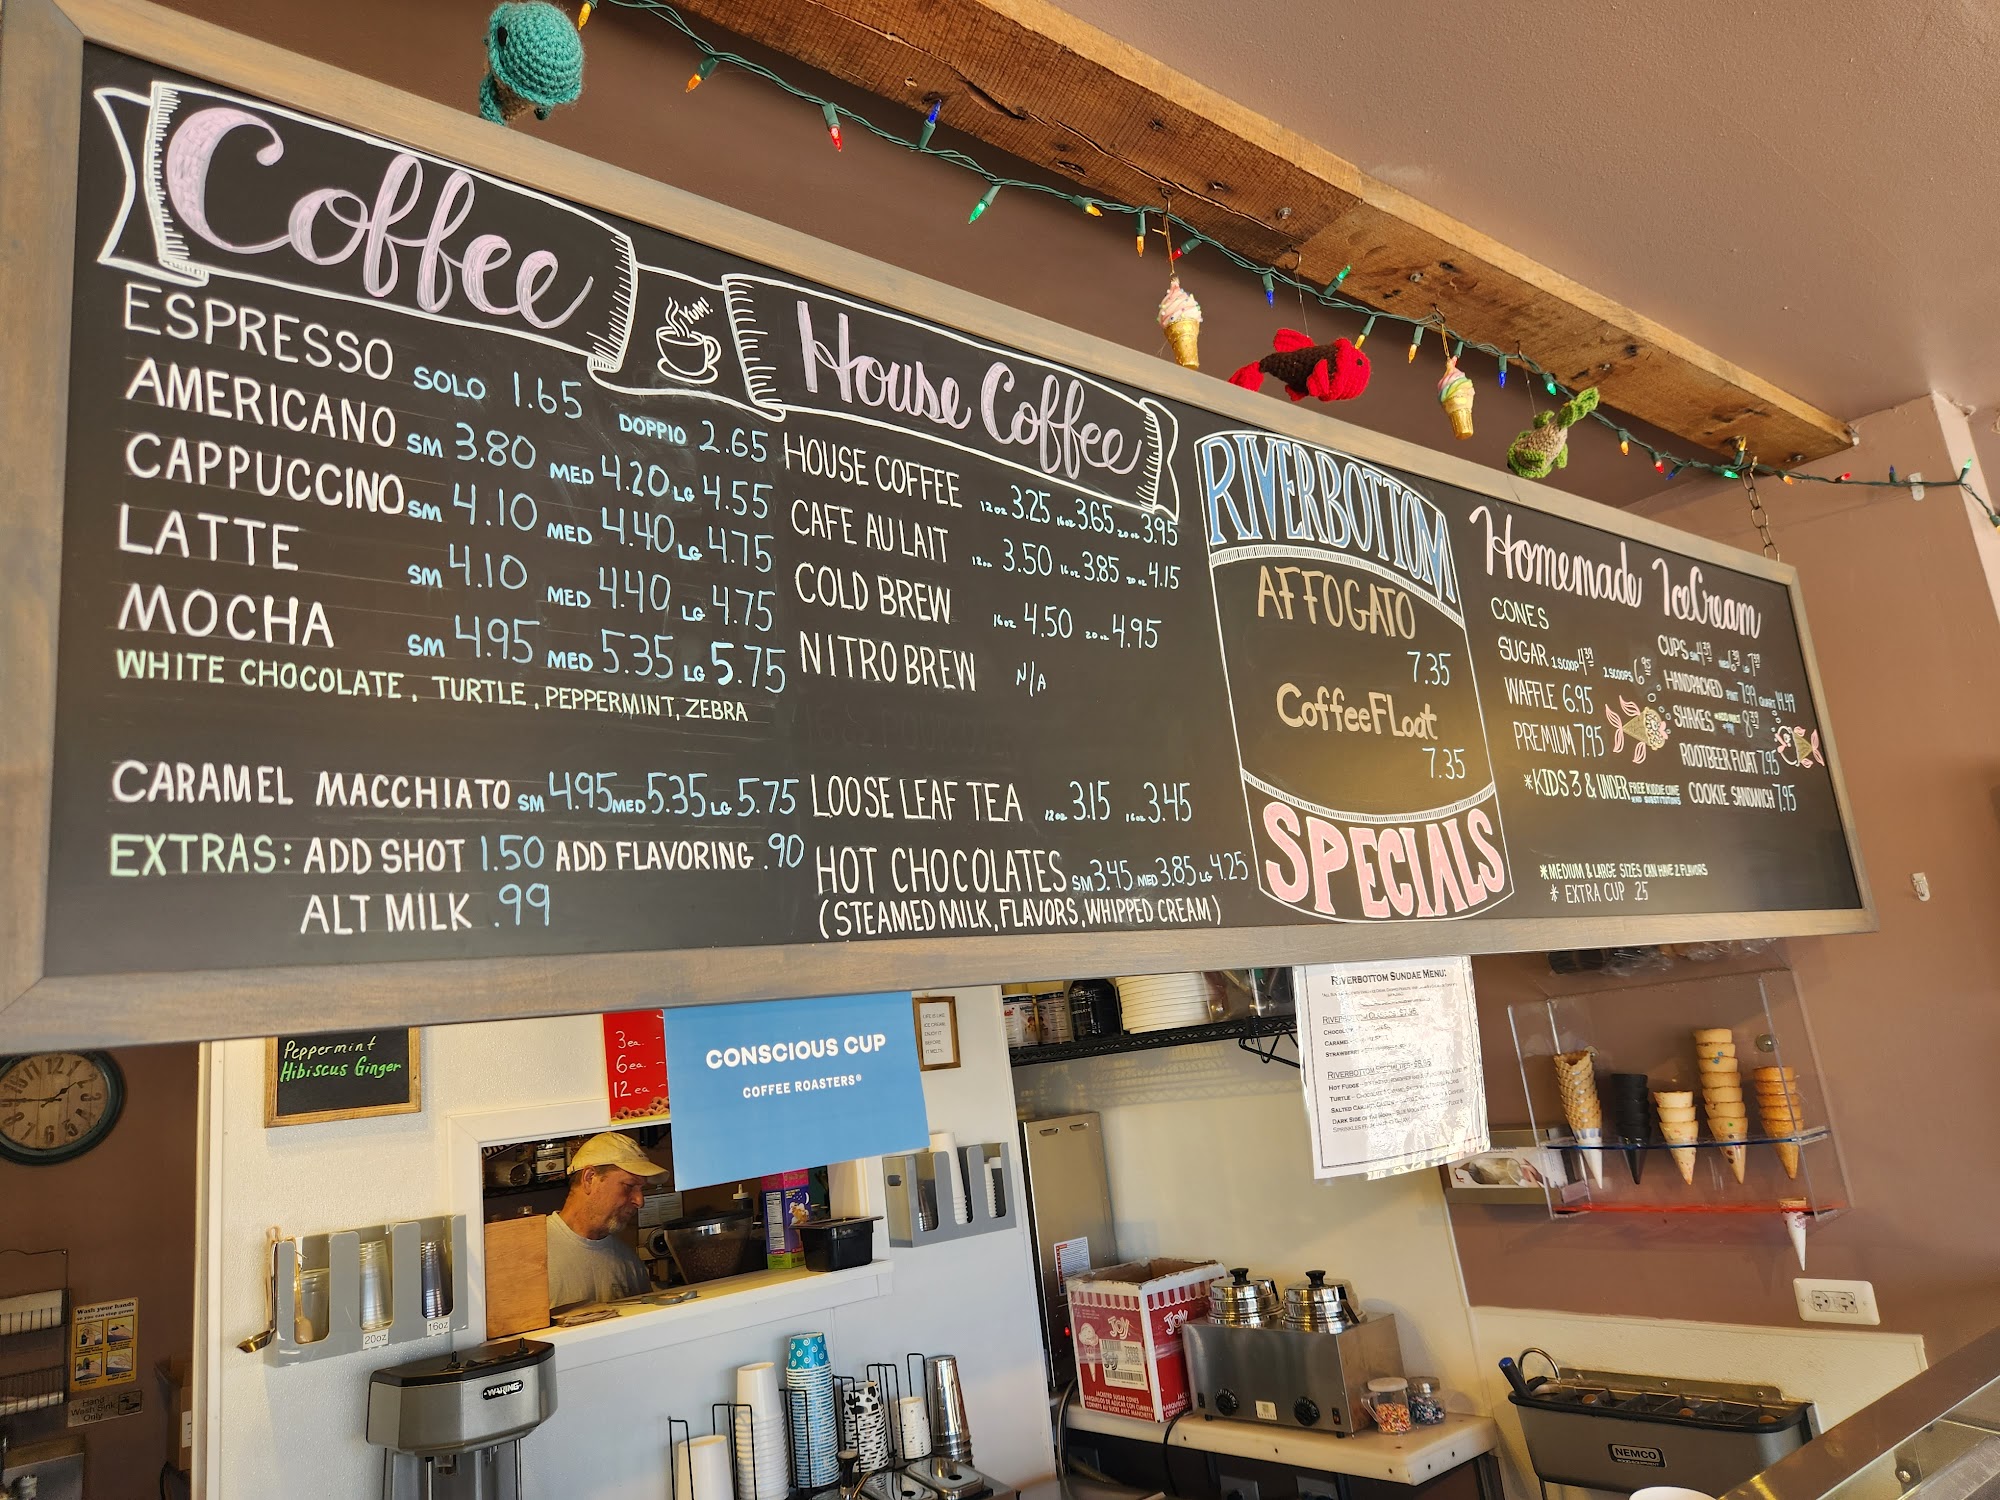 Coffee
YUM!
ESPRESSO SOLO 1.65 DOPPIO 2.65
AMERICANO SM 3.80 MED 4.20 LG 4.55
CAPPUCCINO SM 4.10 MED 4.40 LG 4.75
LATTE SM 4.10 MED 4.40 LG 4.75
MOCHA SM 4.95 MED 5.35 LG 5.75
WHITE CHOCOLATE, TURTLE, PEPPERMINT, ZEBRA
CARAMEL MACCHIATO SM 4.95 MED 5.35 LG 5.75
EXTRAS: ADD SHOT 1.50 ADD FLAVORING .90
ALT MILK .99
House Coffee
HOUSE COFFEE 12oz 3.25 16oz 3.65 20oz 3.95
CAFE AU LAIT 12oz 3.50 16oz 3.85 20oz 4.15
COLD BREW 16oz 4.50 20oz 4.95
NITRO BREW N/A
LOOSE LEAF TEA 12oz 3.15 16oz 3.45
HOT CHOCOLATES SM 3.45 MED 3.85 LG 4.25
(STEAMED MILK, FLAVORS, WHIPPED CREAM)
RIVERBOTTOM
AFFOGATO
7.35
CoffeeFloat
7.35
SPECIALS
Homemade IceCream
CONES
SUGAR 1 SCOOP 4.39 2 SCOOPS 6.95
WAFFLE 6.95
PREMIUM 7.95
*KIDS 3 & UNDER FREE KIDDIE CONE
NO SUBSTITUTIONS
CUPS SM 4.39
HANDPACKED PINT 7.99 QUART 14.49
SHAKES 8.39
ROOTBEER FLOAT 7.95
COOKIE SANDWICH 7.95
*MEDIUM & LARGE SIZES CAN HAVE 2 FLAVORS
* EXTRA CUP .25
Peppermint
Hibiscus Ginger
3ea.
6ea.
12ea
CONSCIOUS CUP
COFFEE ROASTERS®
LIFE IS LIKE
ICE CREAM
ENJOY IT
BEFORE
IT MELTS.
RIVERBOTTOM SUNDAE MENU:
CHOCOLATE
CARAMEL
STRAWBERRY
HOT FUDGE
TURTLE
Wash your hands
Hand
Wash Sink
Only
20oz
16oz
WARING
JOY
JOY
NEMCO